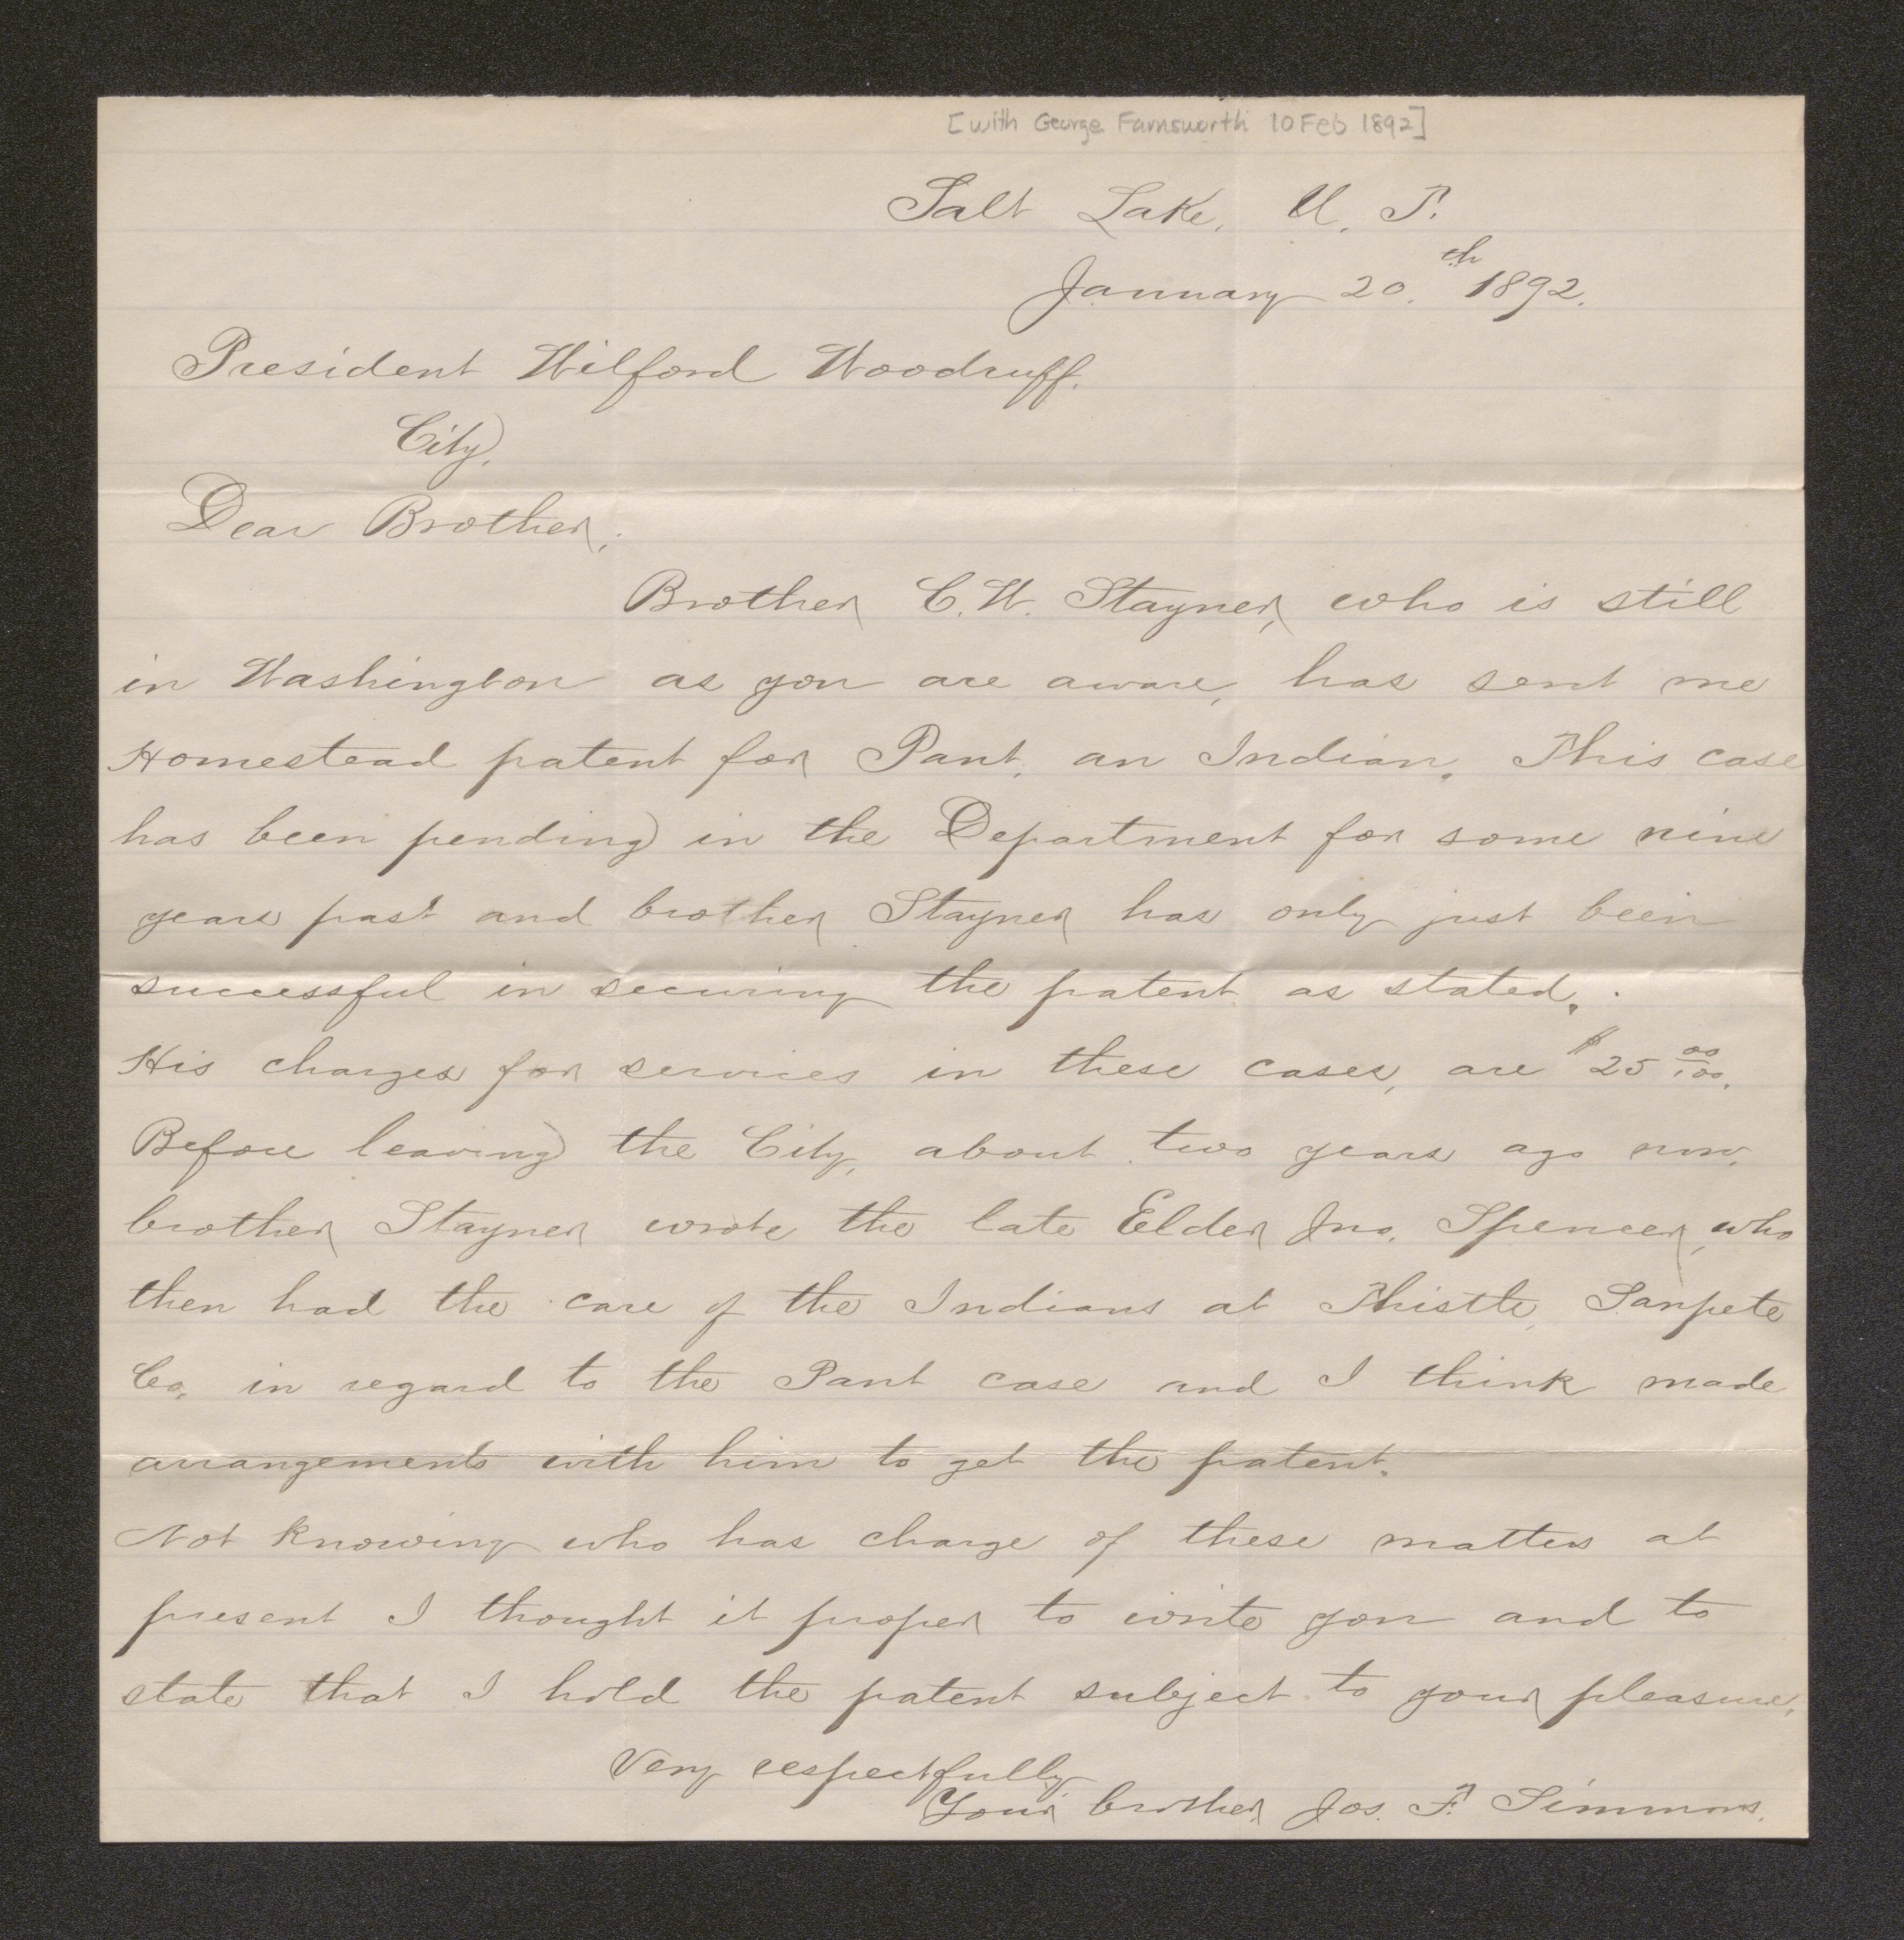 [with George Farnsworth 10 Feb 1892]
Salt Lake, U. T.
January 20th 1892.
President Wilford Woodruff.
City.
Dear Brother;
Brother C. W. Stayner, who is still
in Washington as you are aware, has sent me
Homestead patent for Pant, an Indian. This case
has been pending in the Department for some nine
years past and brother Stayner has only just been
successful in securing the patent as stated.
His charges for services in these cases, are $25 00/100.
Before leaving the City, about two years ago now,
brother Stayner wrote the late Elder Jno. Spencer, who
then had the care of the Indians at Thistle, Sanpete
Co. in regard to the Pant case and I think made
arrangements with him to get the patent.
Not knowing who has charge of these matters at
present I thought it proper to write you and to
state that I hold the patent subject to your pleasure.
Very respectfully
Your brother Jos. F. Simmons.